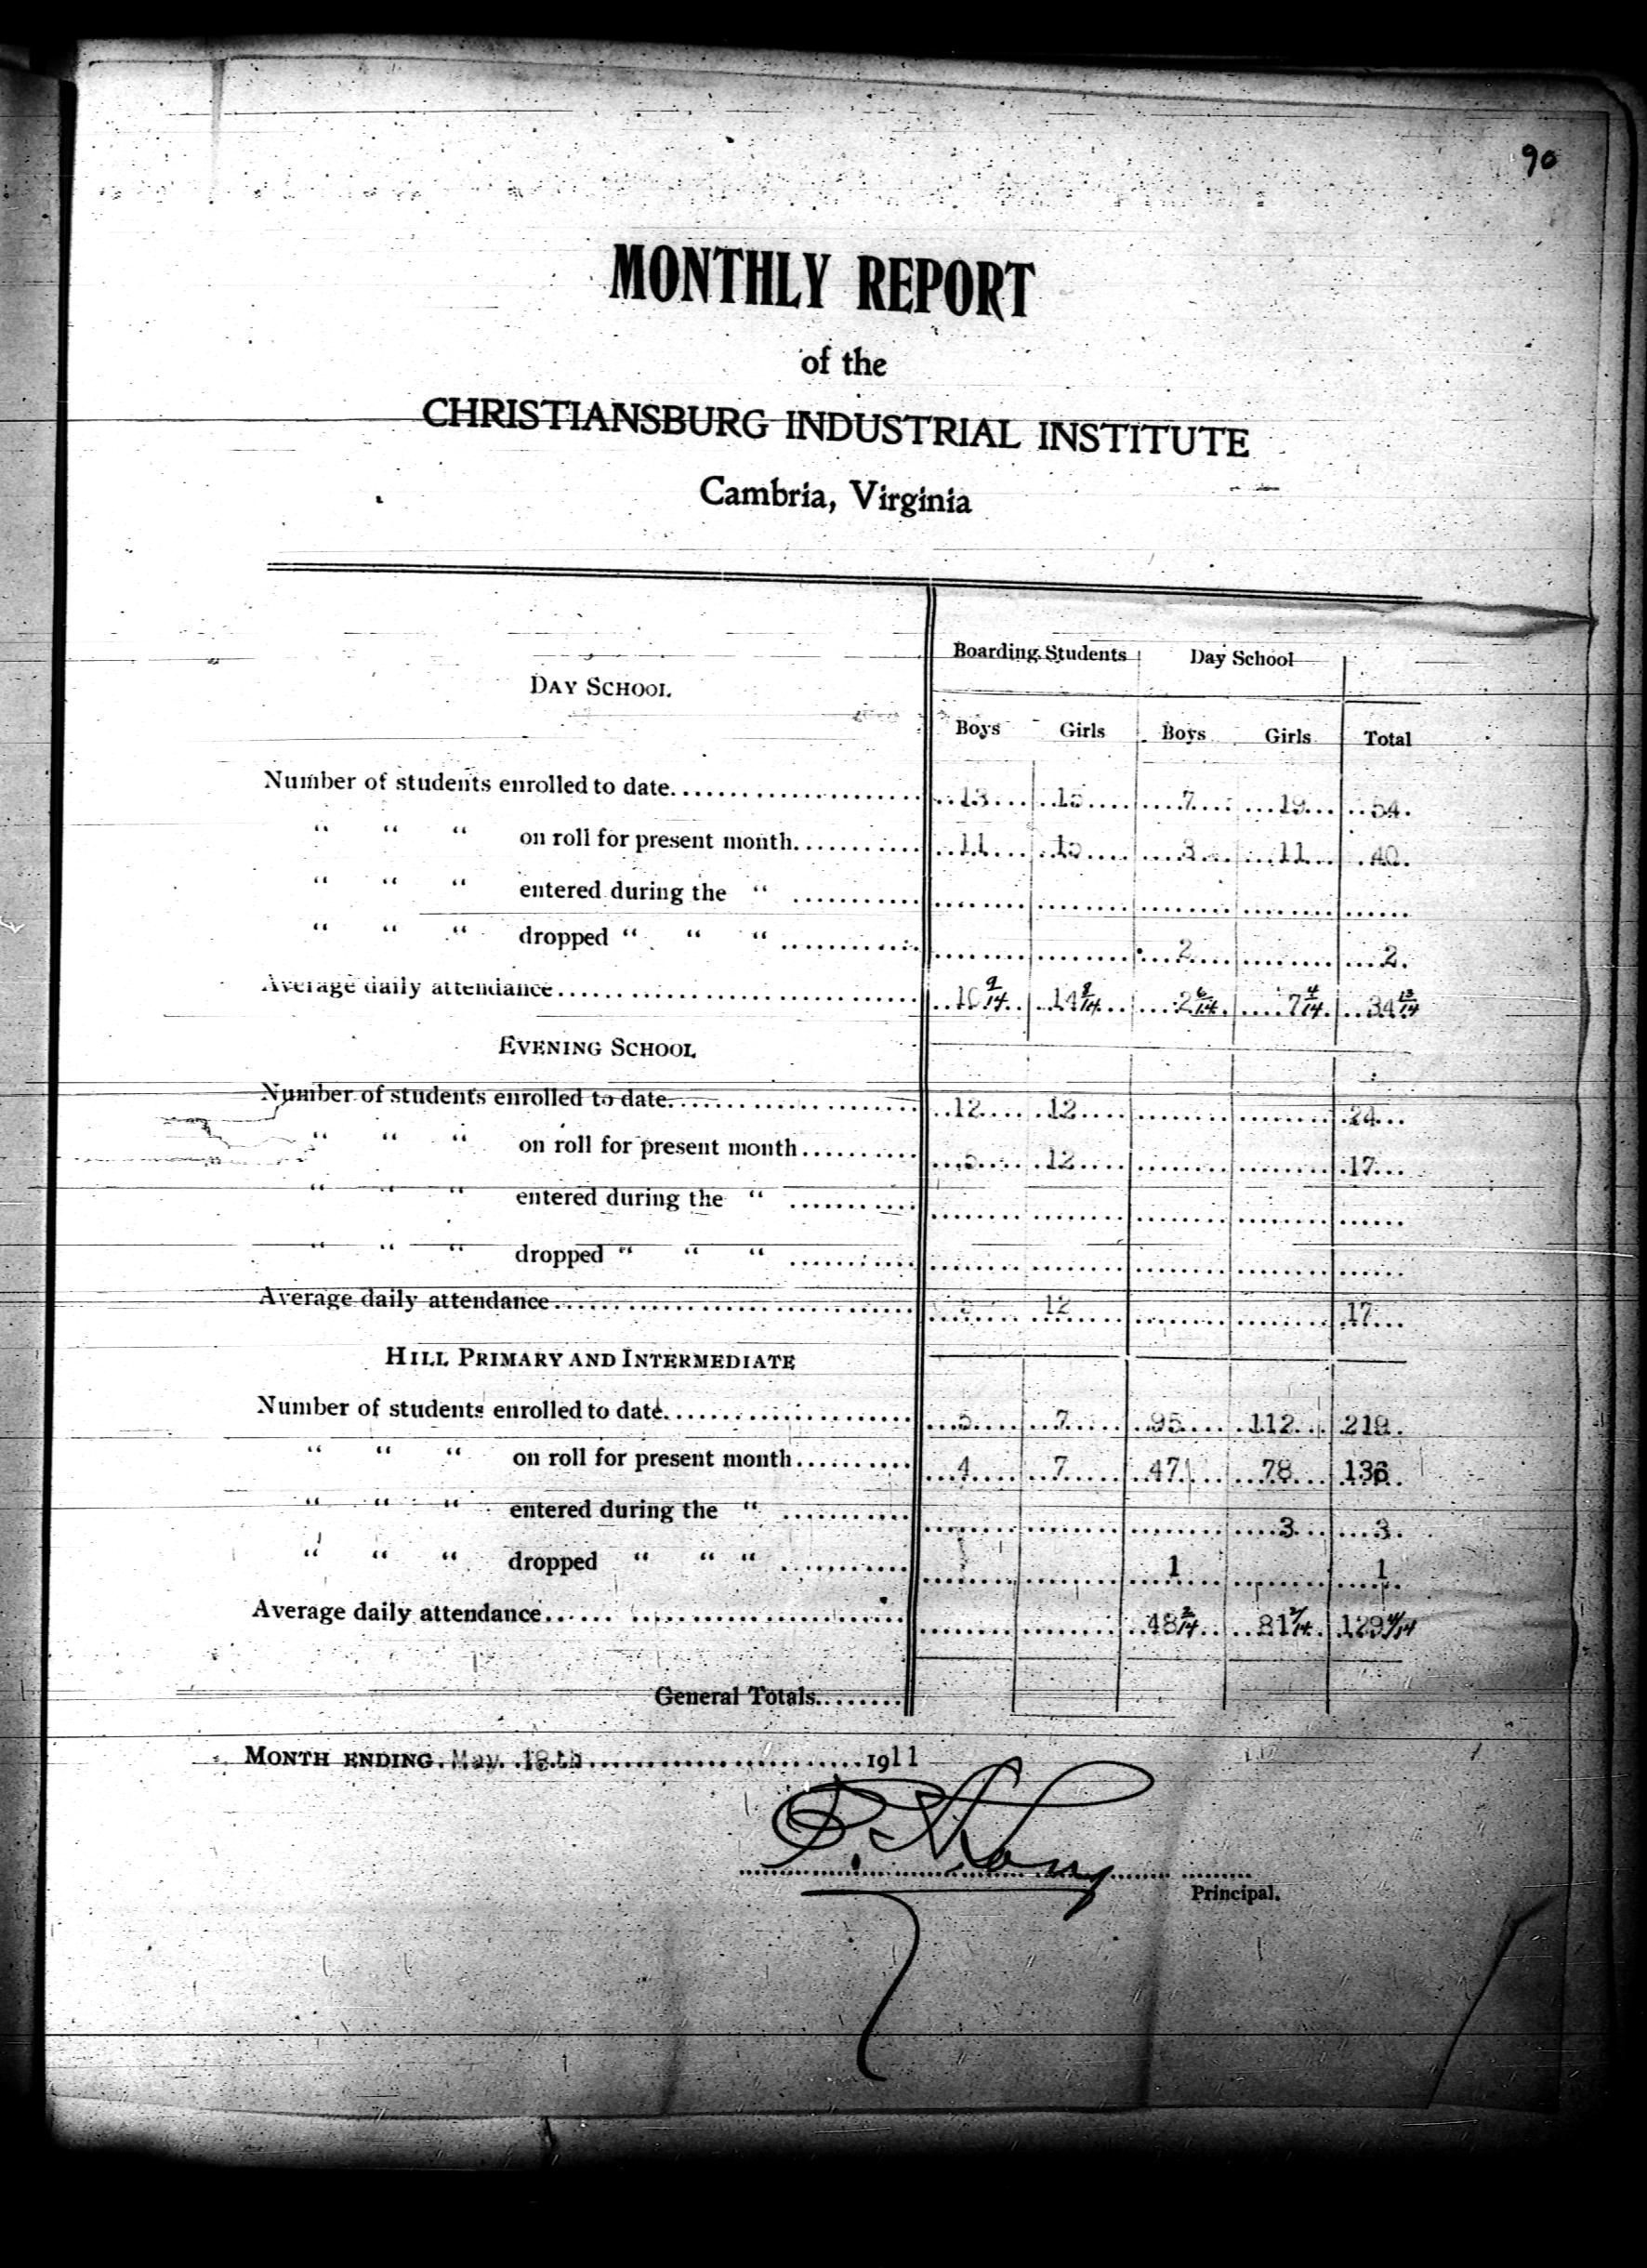 90
MONTHLY REPORT
of the
CHRISTIANSBURG INDUSTRIAL INSTITUTE
Cambria, Virginia
Boarding Students Day School
DAY SCHOOL
Boys Girls Boys Girls Total
Number of students enrolled to date 13 15 7 19 54
“ “ “ on roll for present month 11 15 3 11 40
“ “ “ entered during the “
“ “ “ dropped “ “ “ 2 2
Average daily attendance 10 9/14 14 8/14 2 6/14 7 4/14 34 13/14
EVENING SCHOOL
Number of students enrolled to date 12 12 24
“ “ “ on roll for present month 5 12 17
“ “ “ entered during the “
“ “ “ dropped “ “ “
Average daily attendance 5 12 17
HILL PRIMARY AND INTERMEDIATE
Number of students enrolled to date 5 7 95 112 219
“ “ “ on roll for present month 4 7 47 78 136
“ “ “ entered during the “ 3 3
“ “ “ dropped “ “ “ 1 1
Average daily attendance 48 2/14 81 2/14 129 4/14
General Totals
MONTH ENDING May 18th 1911
Long
Principal.